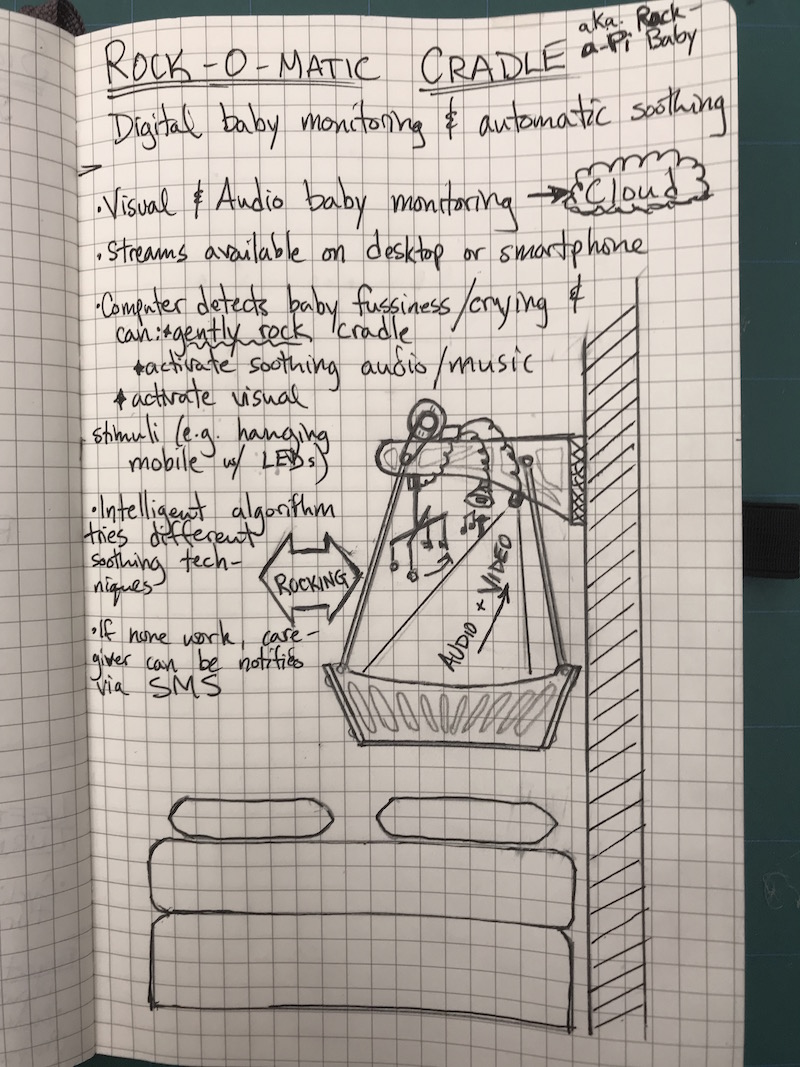 ROCK-O-MATIC CRADLE
aka. Rock-
a-Pi Baby
Digital baby monitoring & automatic soothing
• Visual & Audio baby monitoring → Cloud
• Streams available on desktop or smartphone
• Computer detects baby fussiness/crying &
can: * gently rock cradle
* activate soothing audio/music
* activate visual
stimuli (e.g. hanging
mobile w/ LEDs)
• Intelligent algorithm
tries different
soothing tech-
niques
• If none work, care-
giver can be notified
via SMS
ROCKING
AUDIO + VIDEO